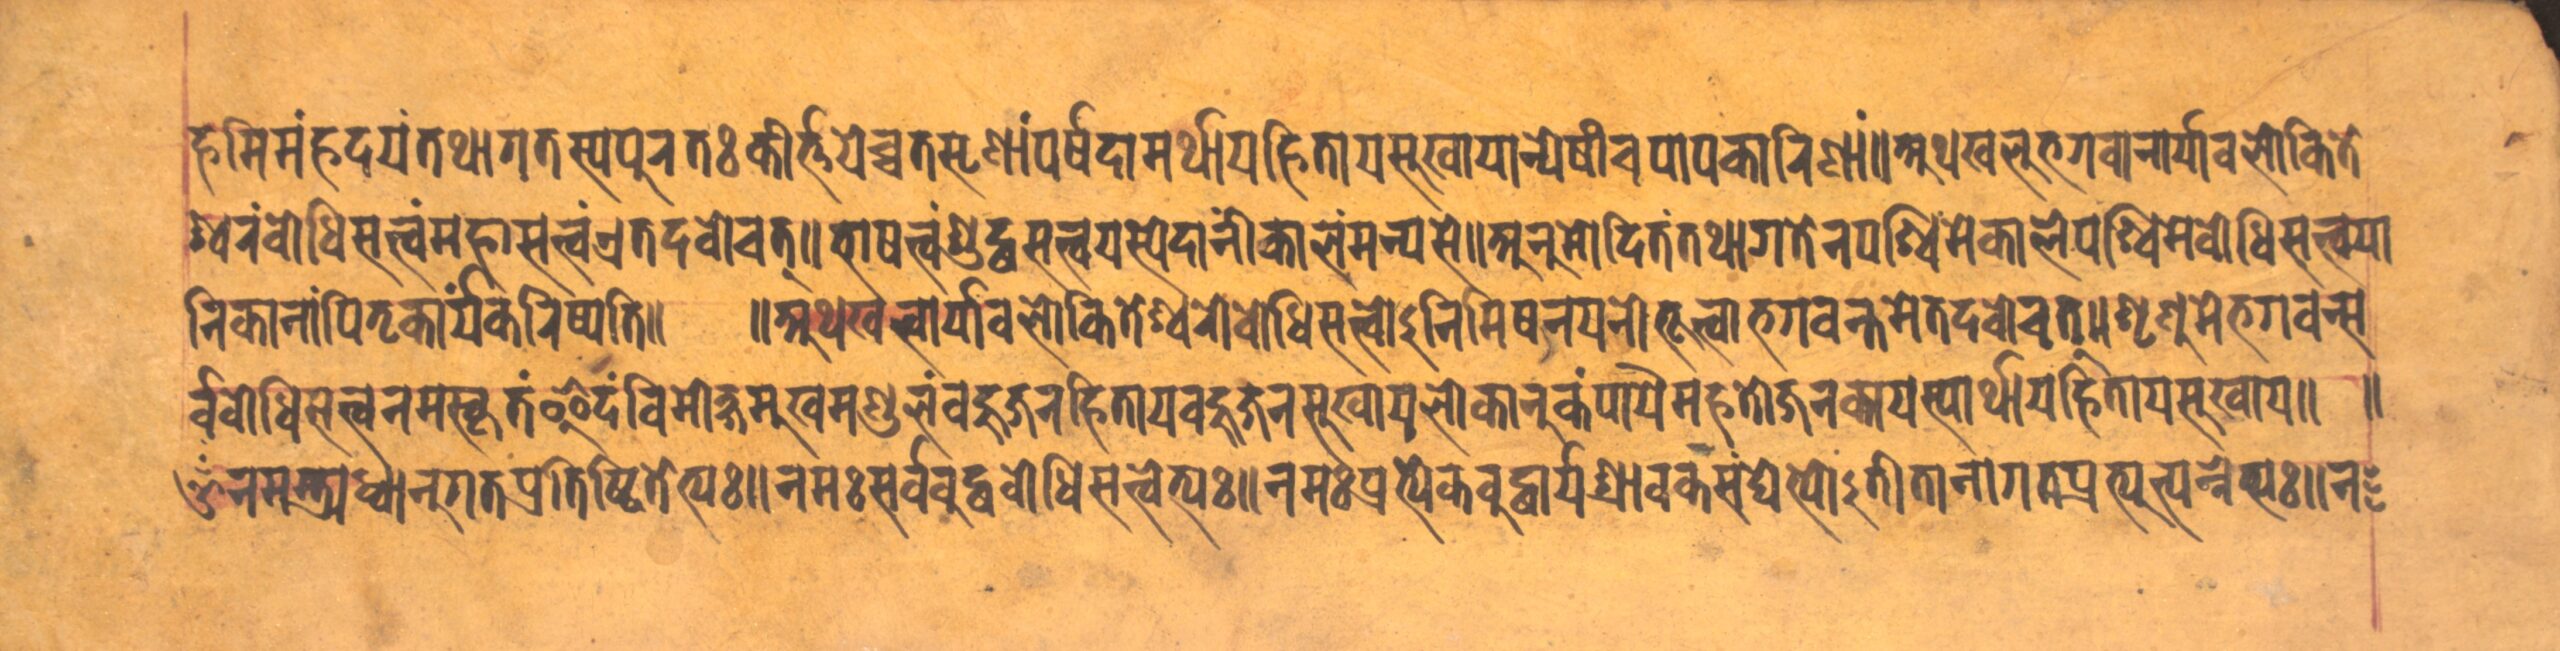 हमिमंहृदयंतथागतस्यपुरतःकीर्त्तयेच्चतसृणांपर्षदामर्थायहितायसुखायान्येषांचपापकारिणां॥अथखलुभगवानार्यावलोकिते
श्वरंबोधिसत्त्वंमहासत्त्वंएतदवोचत्॥भाषत्त्वंशुद्धसत्त्वयस्येदानींकालंमन्यसे॥अनुमोदितंतथागतेनपश्चिमेकालेपश्चिमेबोधिसत्त्वया
निकानांपितृकार्यंकरिष्यति॥ ॥अथखल्वार्यावलोकितेश्वरोबोधिसत्त्वोऽनिमिषनयनोभूत्वाभगवन्तमेतदवोचत्॥शृणुमेभगवन्स
र्वबोधिसत्त्वनमस्कृतंइदंविमोक्षमुखमण्डलंबहुजनहितायबहुजनसुखायलोकानुकंपायैमहतोजनकायस्यार्थायहितायसुखाय॥ ॥
ॐनमस्त्र्यध्वानुगतप्रतिष्ठितेभ्यः॥नमःसर्वबुद्धबोधिसत्त्वेभ्यः॥नमःप्रत्येकबुद्धार्यश्रावकसंघेभ्योऽतीतानागतप्रत्युत्पन्नेभ्यः॥न